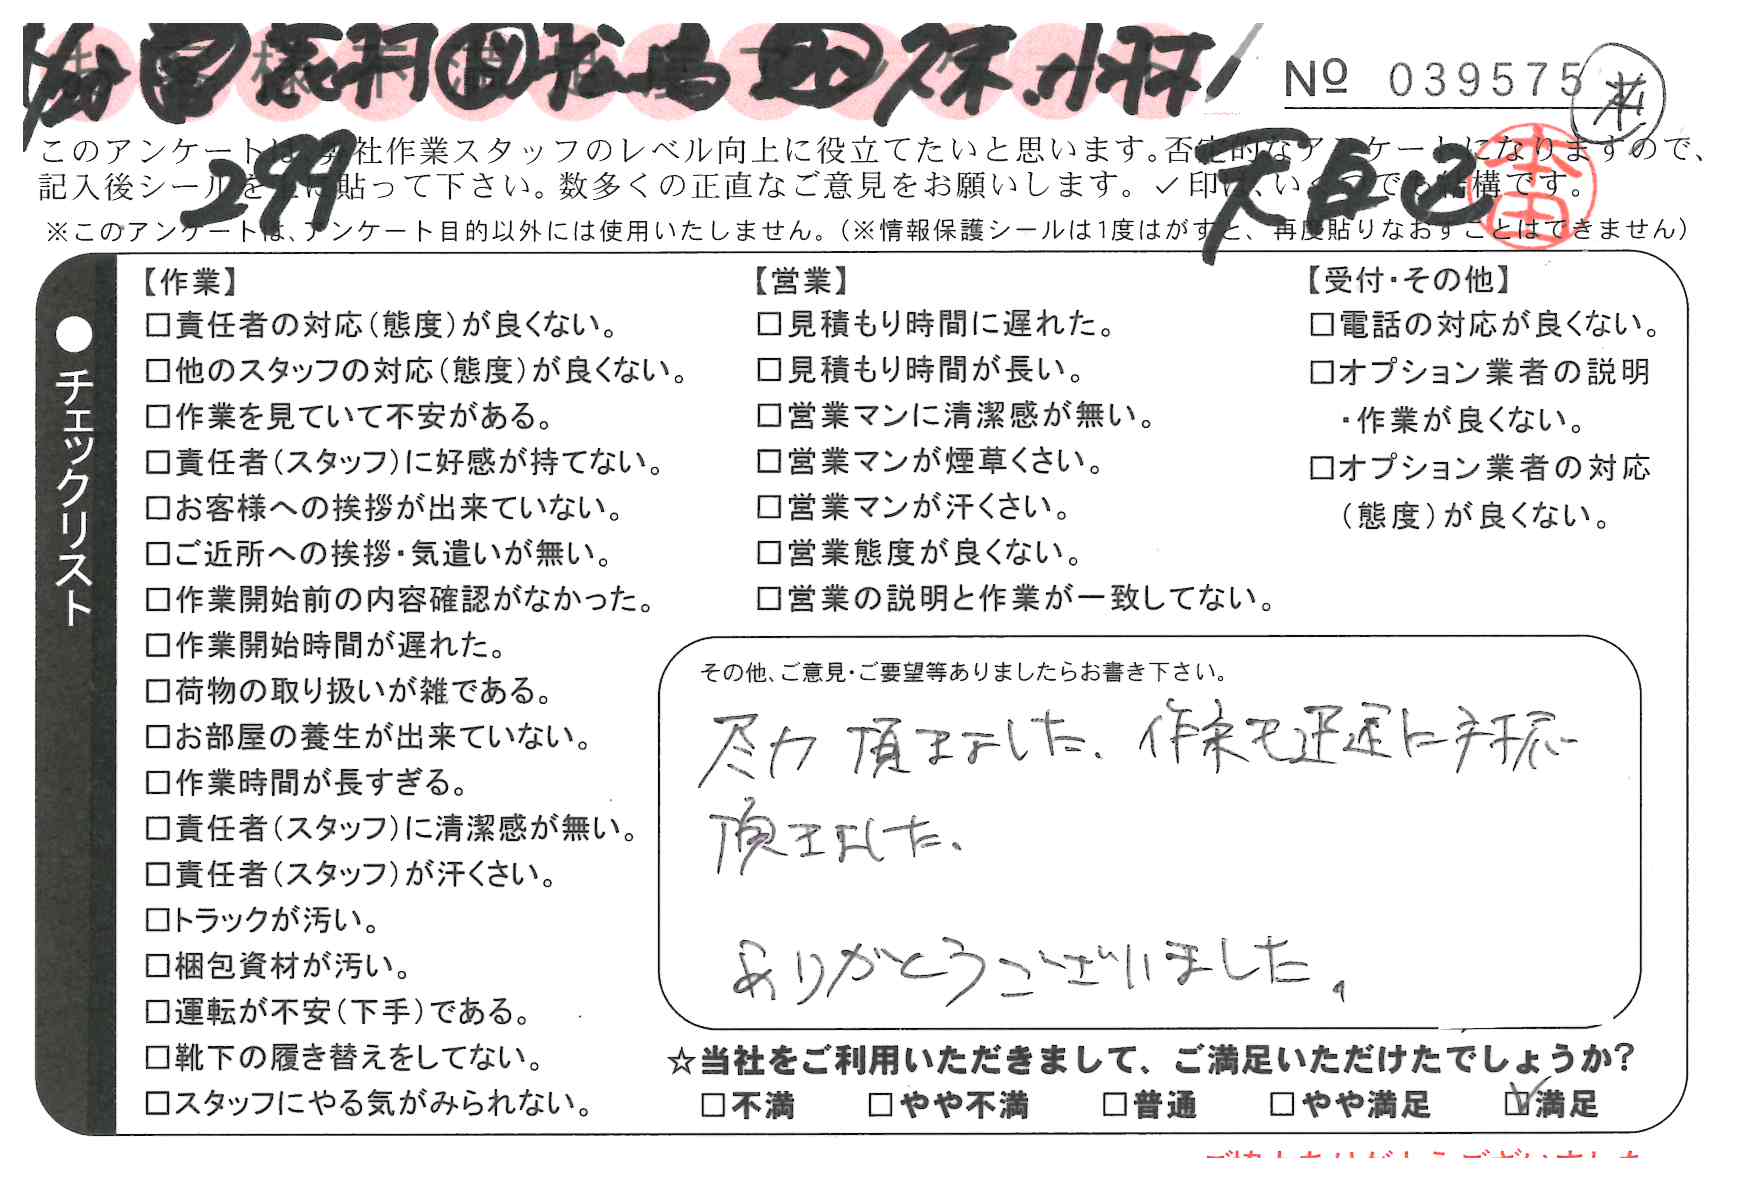 松島
小林
№ 039575
このアンケートは、弊社作業スタッフのレベル向上に役立てたいと思います。否定的なアンケートになりますので、
299
記入後シールを上に貼って下さい。数多くの正直なご意見をお願いします。✓印は、いくつでも結構です。
※このアンケートは、アンケート目的以外には使用いたしません。(※情報保護シールは1度はがすと、再度貼りなおすことはできません)
●チェックリスト
【作業】
□責任者の対応(態度)が良くない。
□他のスタッフの対応(態度)が良くない。
□作業を見ていて不安がある。
□責任者(スタッフ)に好感が持てない。
□お客様への挨拶が出来ていない。
□ご近所への挨拶・気遣いが無い。
□作業開始前の内容確認がなかった。
□作業開始時間が遅れた。
□荷物の取り扱いが雑である。
□お部屋の養生が出来ていない。
□作業時間が長すぎる。
□責任者(スタッフ)に清潔感が無い。
□責任者(スタッフ)が汗くさい。
□トラックが汚い。
□梱包資材が汚い。
□運転が不安(下手)である。
□靴下の履き替えをしてない。
□スタッフにやる気がみられない。
【営業】
□見積もり時間に遅れた。
□見積もり時間が長い。
□営業マンに清潔感が無い。
□営業マンが煙草くさい。
□営業マンが汗くさい。
□営業態度が良くない。
□営業の説明と作業が一致してない。
【受付・その他】
□電話の対応が良くない。
□オプション業者の説明
・作業が良くない。
□オプション業者の対応
(態度)が良くない。
その他、ご意見・ご要望等ありましたらお書き下さい。
尽力頂きました、作業も迅速に対応
頂きました、
ありがとうございました。
☆当社をご利用いただきまして、ご満足いただけたでしょうか?
□不満 □やや不満 □普通 □やや満足 ☑満足
ご協力ありがとうございました